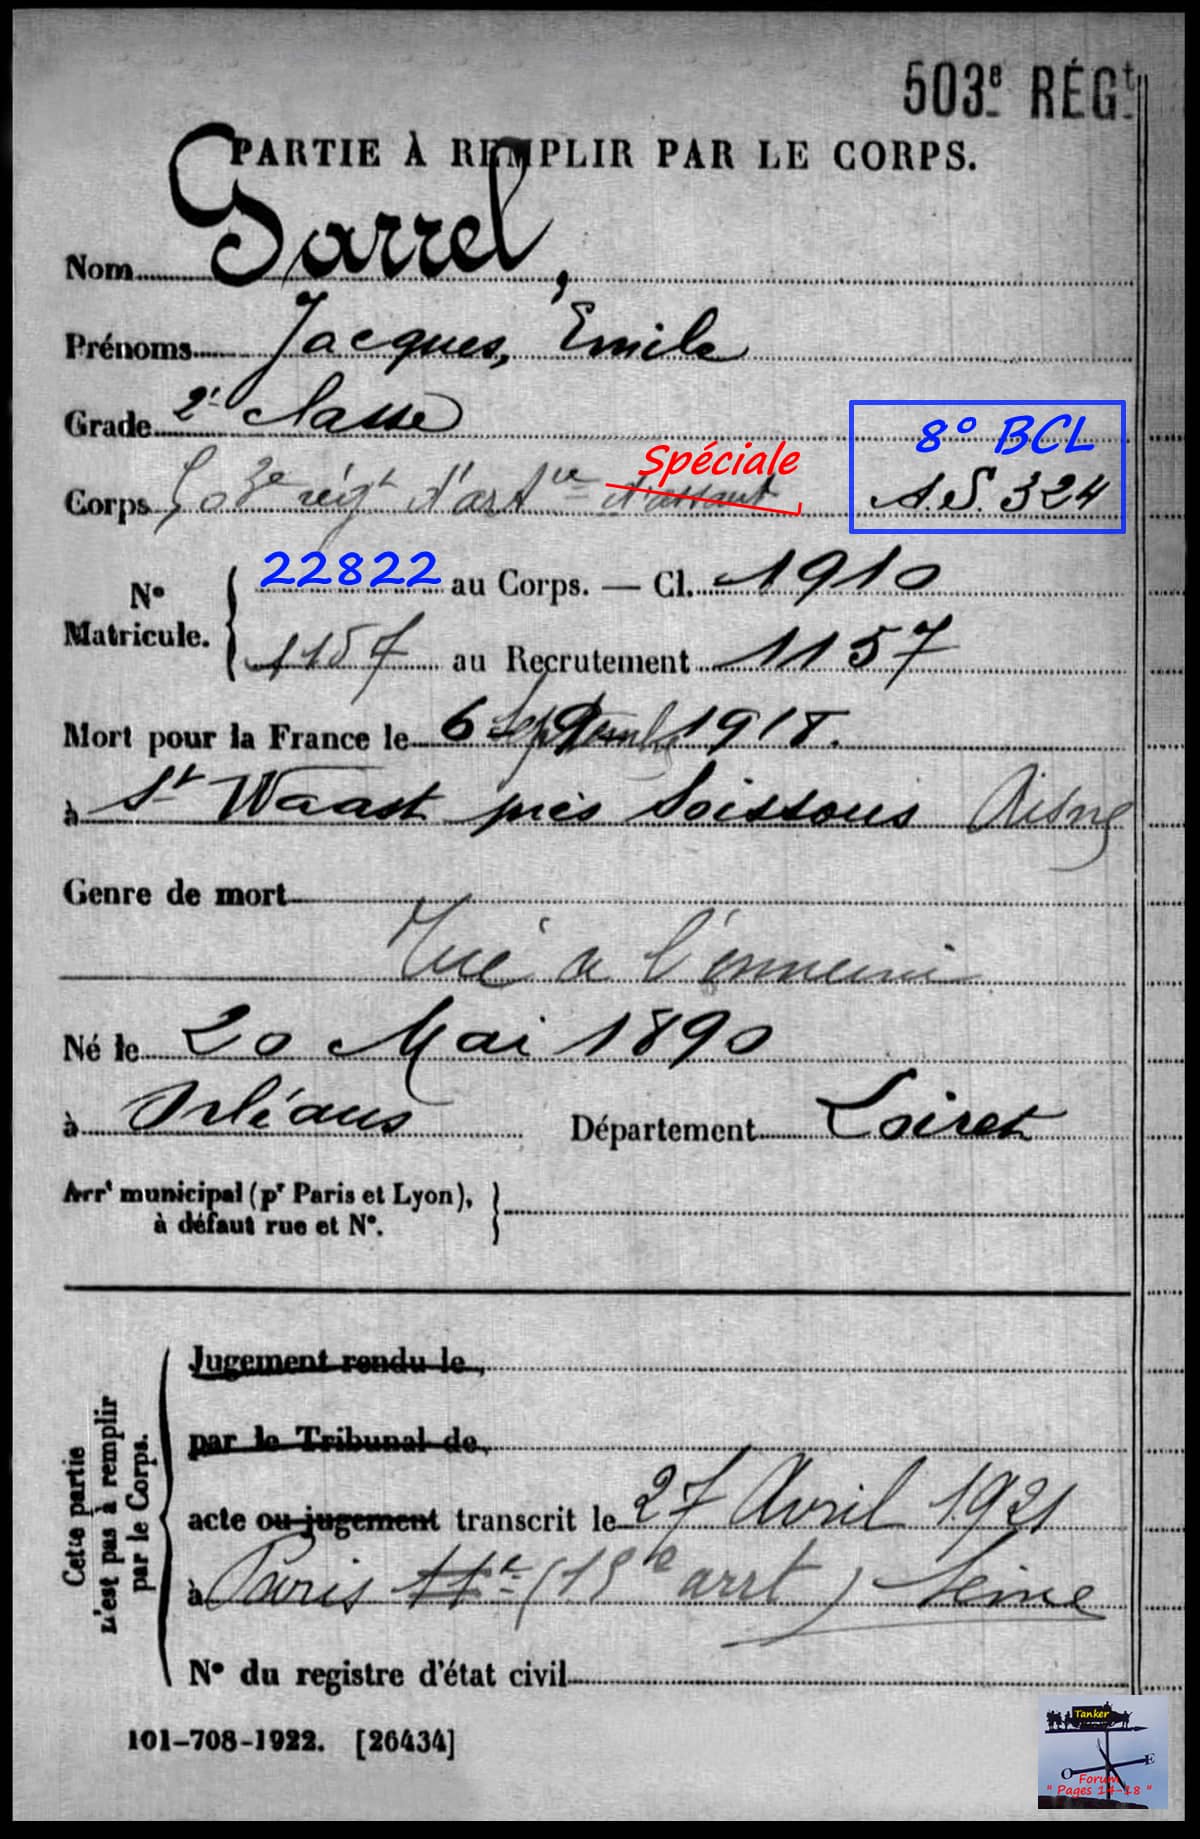 503e RÉGt
PARTIE À REMPLIR PAR LE CORPS.
Nom Garrel,
Prénoms Jacques, Emile
Grade 2e classe
8° BCL
Spéciale
Corps 503e régt d'artie d'assaut A.S. 324
No Matricule. { 22822 au Corps. — Cl. 1910
1157 au Recrutement 1157
Mort pour la France le 6 Septembre 1918.
à St Waast près Soissons Aisne
Genre de mort
Tué à l'ennemi
Né le 20 Mai 1890
à Orléans Département Loiret
Arrt municipal (pr Paris et Lyon), }
à défaut rue et No.
Cette partie
n'est pas à remplir
par le Corps.
Jugement rendu le,
par le Tribunal de,
acte ou jugement transcrit le 27 Avril 1921
à Paris 11e (15e arrt) Seine
No du registre d'état civil
101-708-1922. [26434]
Tanker
O E
Forum
" Pages 14-18 "